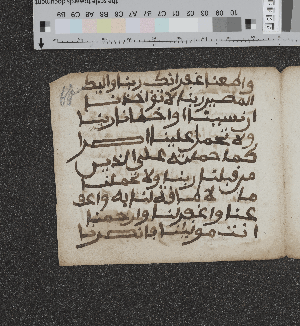 واطعنا غفرانك ربنا واليك
المصير ربنا لا تواخذنا
ان نسينا او اخطانا ربنا
ولا تحمل علينا اصرا
كما حملته على الذين
من قبلنا ربنا ولا تحملنا
ما لا طاقة لنا به واعف
عنا واغفر لنا وارحمنا
انت مولينا فانصرنا